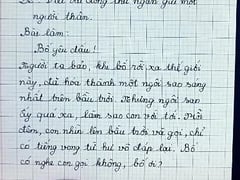 Đề: Viết bài đoạn thư ngắn gửi một
người thân.
Bài làm:
Bố yêu dấu!
Người ta bảo, khi bố rời xa thế giới
này, đã hóa thành một ngôi sao sáng
nhất trên bầu trời. Nhưng ngôi sao
ấy quá xa, làm sao con với tới. Mỗi
đêm, con nhìn lên bầu trời và gọi, chỉ
có tiếng vọng từ hư vô đáp lại. Bố
có nghe con gọi không, bố ơi?